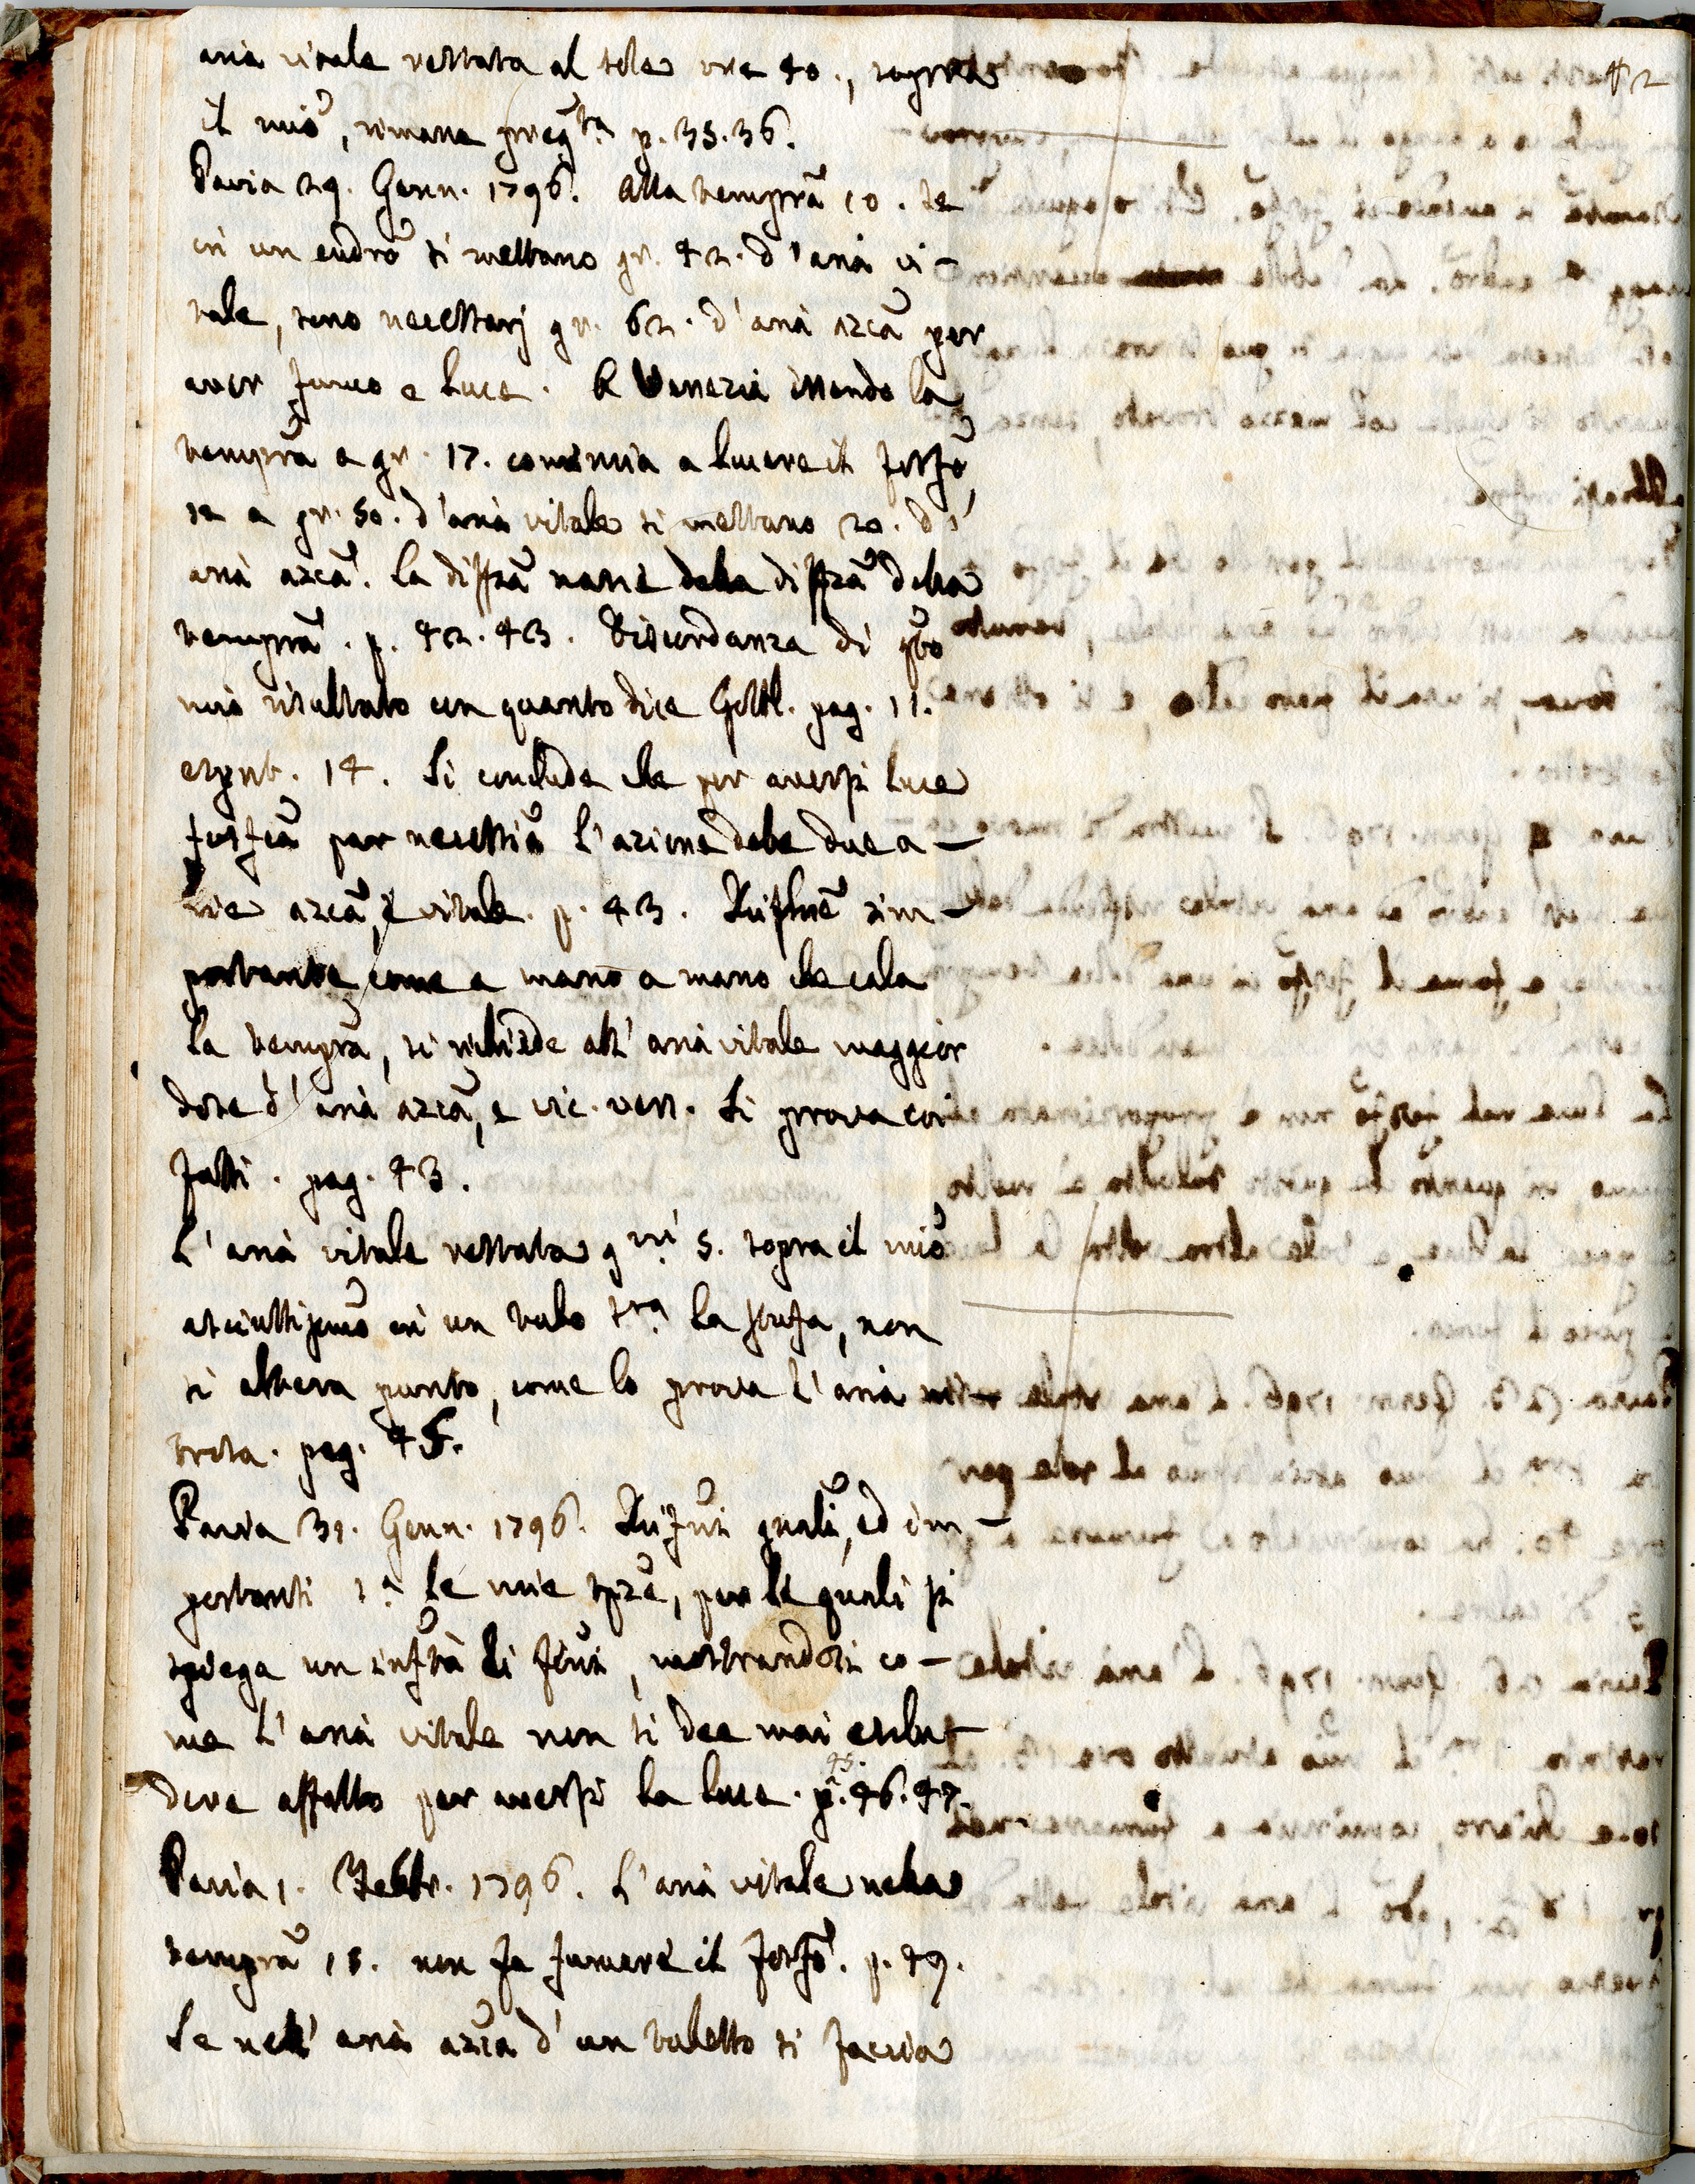 42
aria vitale restata al sole ore 40., sopra
il mio, rimane
Pavia 29. Genn. 1796. Alla temprã 10. se
in un eudrõ si mettano gr. 42. d'aria vi-
tale, sono necessarj gr. 62. d'aria azcã per
aver fumo e luce. A Venezia essendo la
temprã a gr. 17. comincia a lucere il fosfõ,
se a gr. 50. d'aria vitale si mettano 20. d'
aria azcã. La diffzã nasce dalla diffzã della
temprã. p. 42.43. Discordanza di qto
mio risultato con quanto dice Gottl. pag. 11.
expnt. 14. Si conclude che per aversi luce
fosfcã par necessiã l'azione delle due a-
rie azcã, e vitale. p. 43. Rifluẽ im-
portante come a mano a mano che cala
la temprã, si richiede all'aria vitale maggior
dose d'aria azcã, e vic. vers. Si prova coi
fatti. pag. 43.
L'aria vitale restata gni 5. sopra il mio
asciuttissimo in un tubo sra la stufa, non
si altera punto, come lo prova l'aria ni-
trosa. pag. 45.
Pavia 31. Genn. 1796. gnali, ed im-
portanti sa le mie spzẽ, per le quali si
spiega un infità di fõni, mostrandosi co-
me l'aria vitale non si dee mai esclu-
dere affatto per aversi la luce. p. 45. 46. 47.
Pavia 1. Febbr. 1796. L'aria vitale nella
temprã 15. non fa fumare il fosfõ. p. 49.
Se nell'aria azca d'un tubetto si faccia